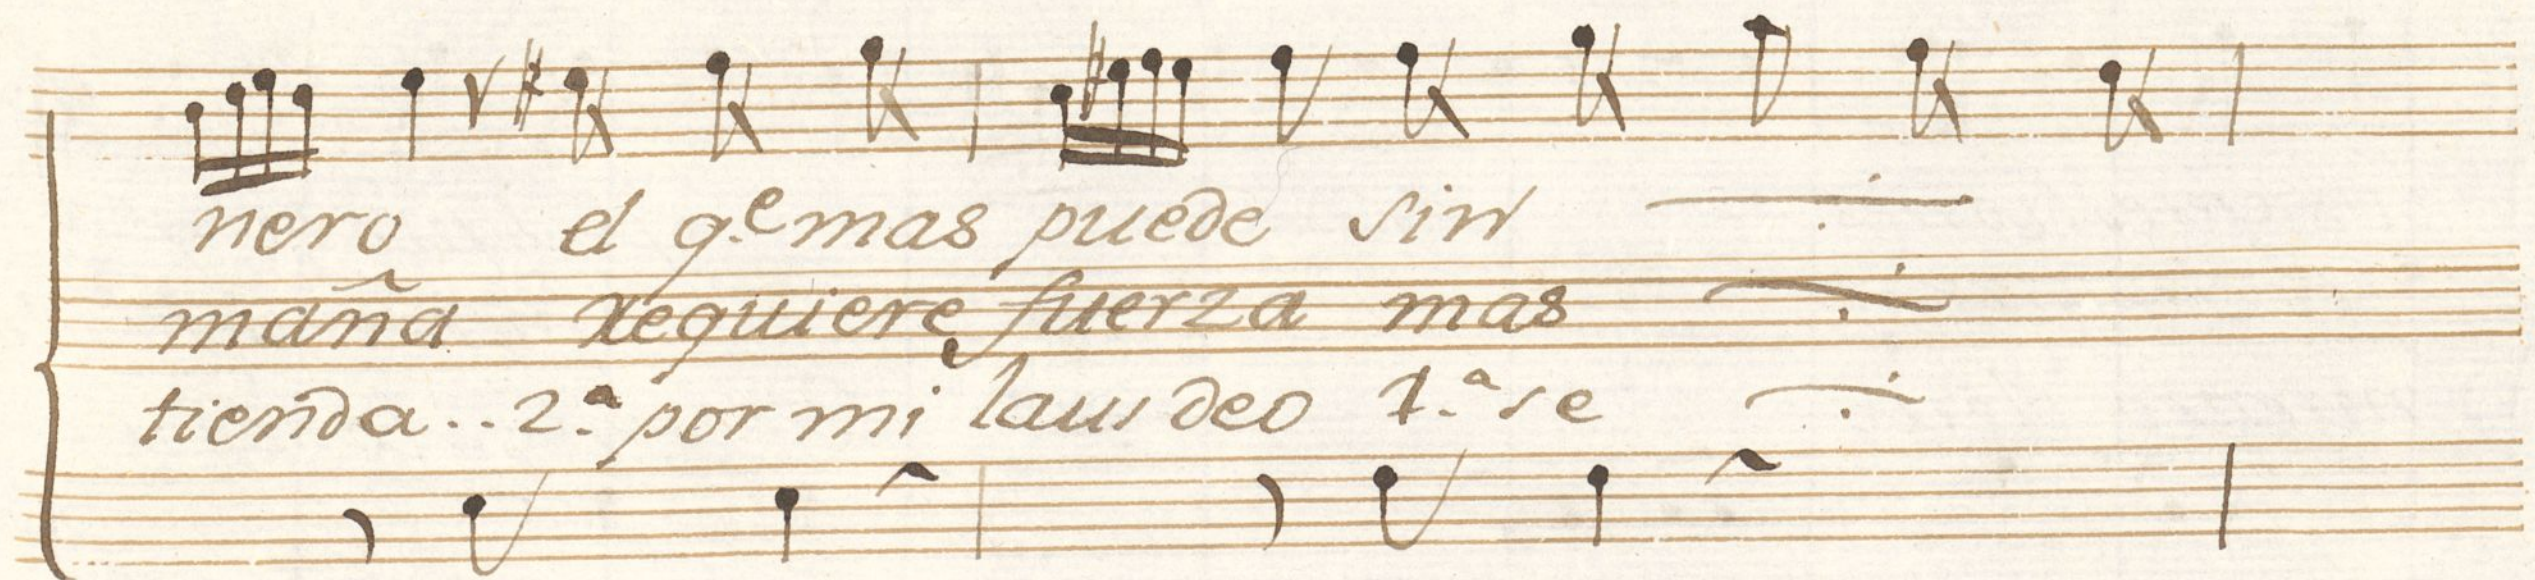 nero el q.e mas puede sin
maña requiere fuerza mas
tienda.. 2.a por mi laus deo 1.a se